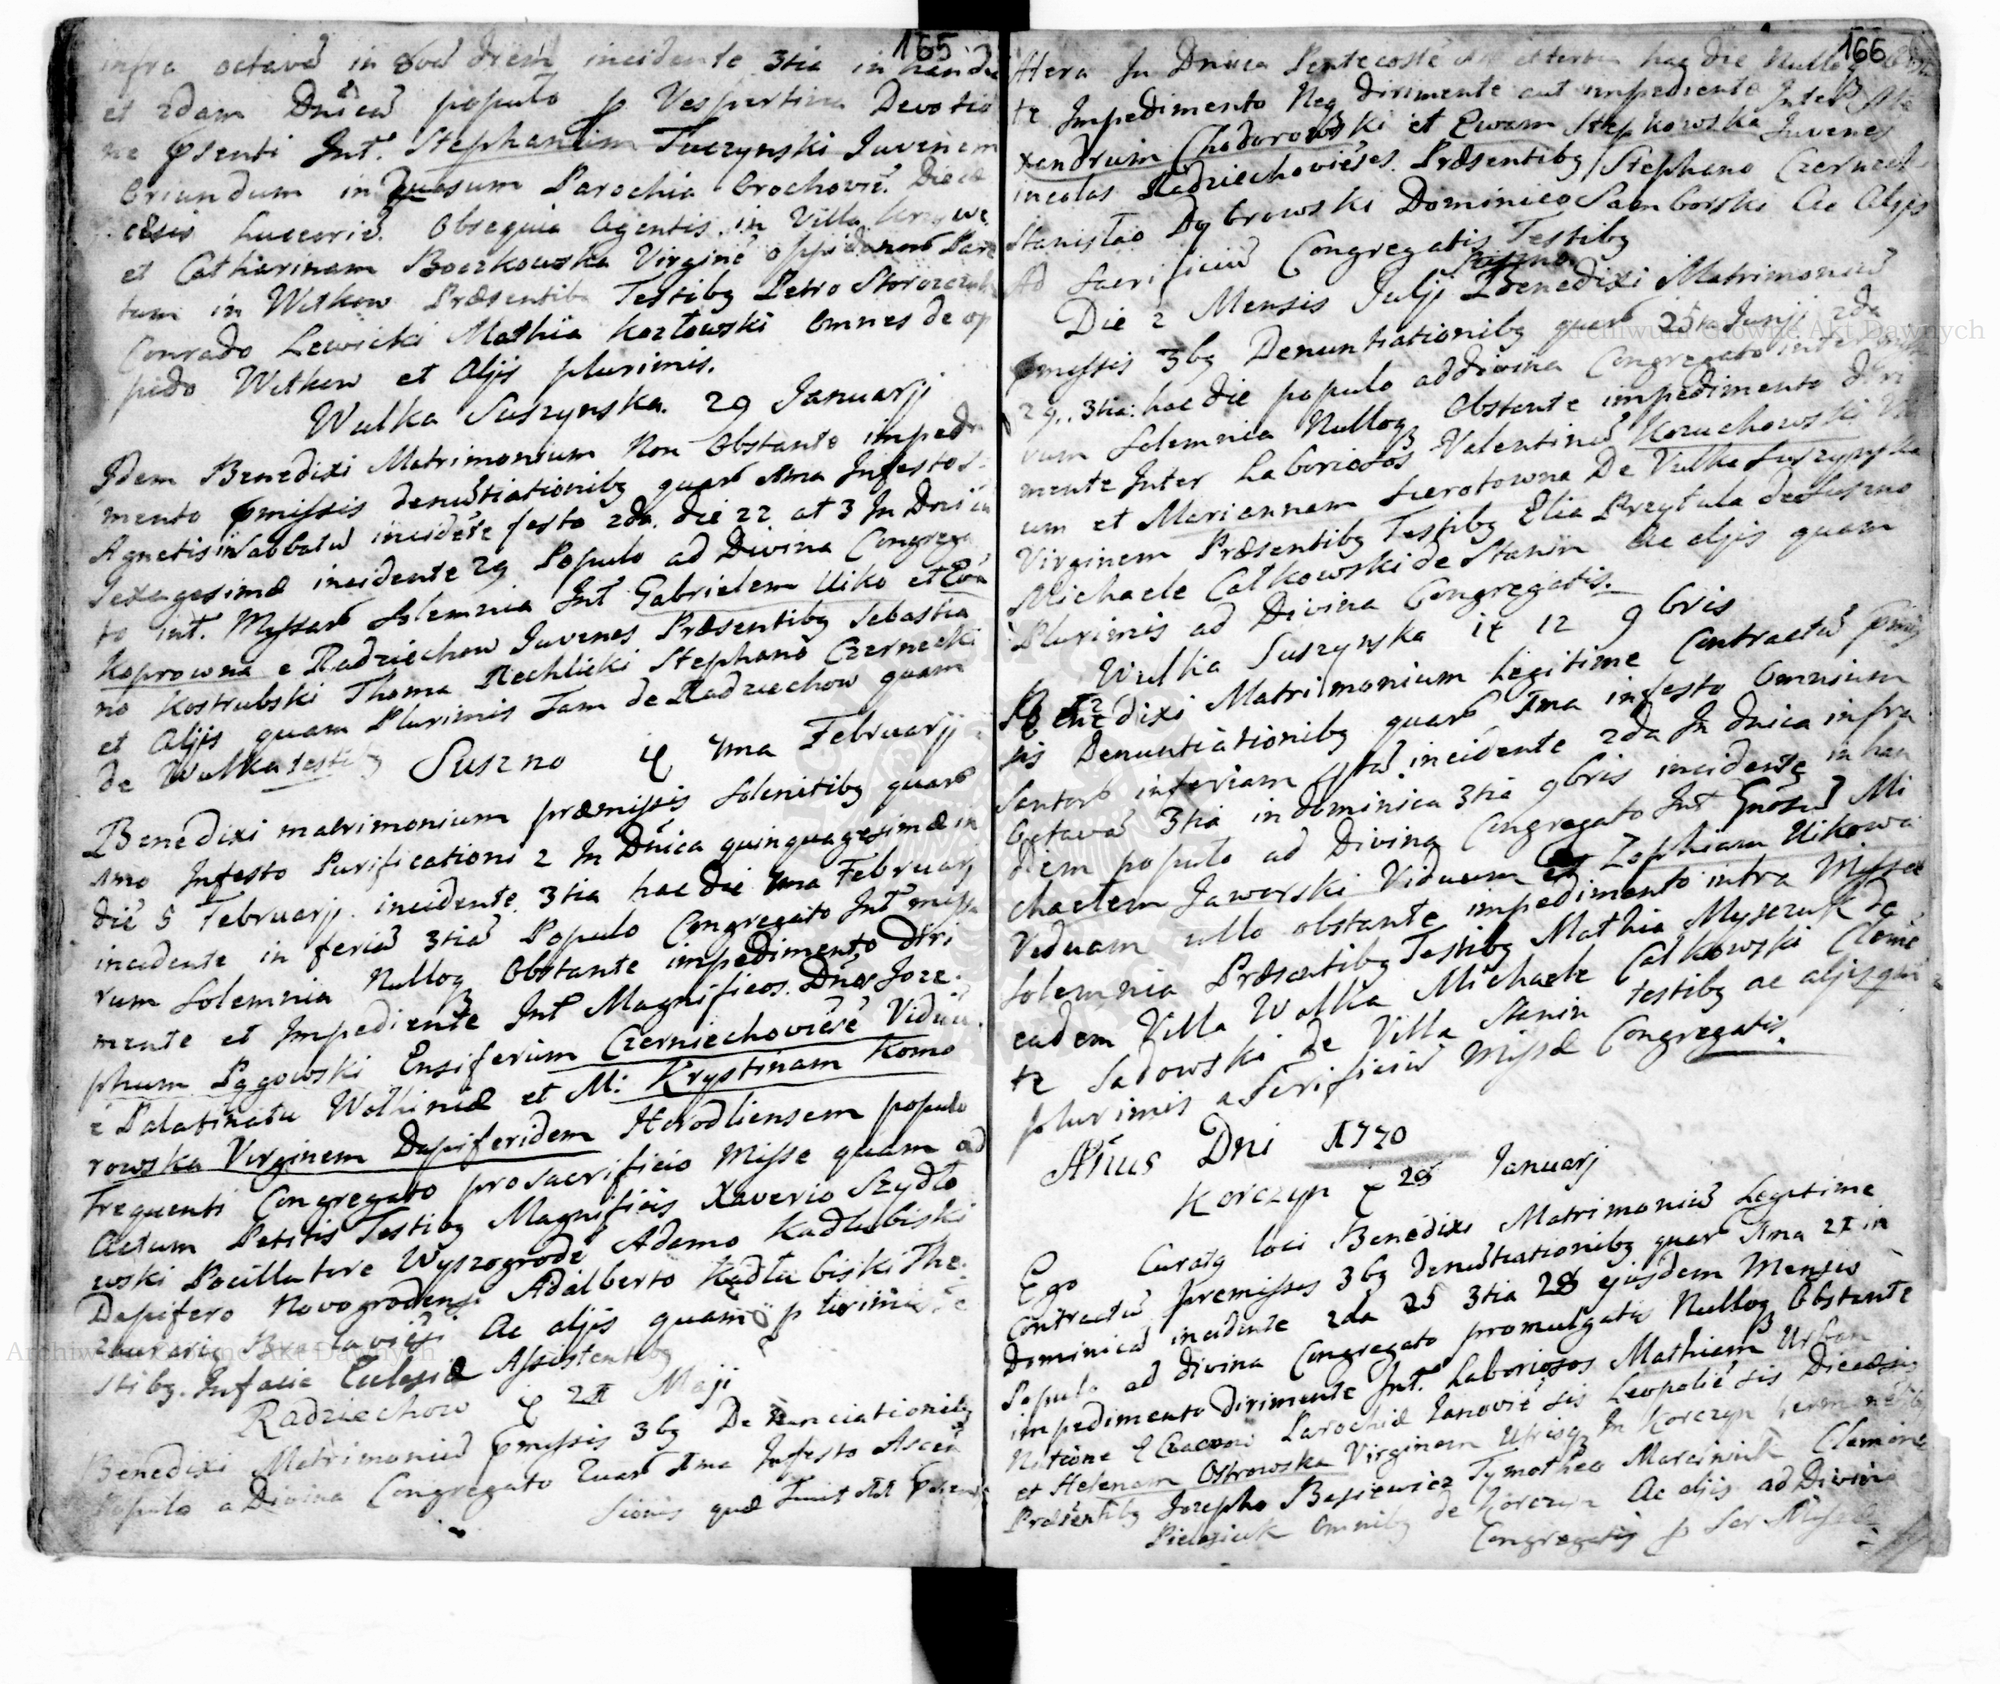 165
infra octavã in 8vã diem incidente 3tia in handie
et 2dam Dnicã populo p Vespertina Devotio
ne psenti Int. Stephanum Tuczynski Juvenem
Oriundum in Parochia Brochovie. Diœ
cesis Luceorie. Obsequia agentis in Villa
et Catharinam Boczkowska Virginé oppidanoř Pare
tum in Witkow Præsentib Testibg Petro
Conrado Lewicki Mathia Kozłowski Omnes de op
pido Witkow et Aljis plurimis.
Wulka Suszynska. 29 Januarji
Idem Benedixi Matrimonium Non Obstante impedi
mento pmissis denũtiationibg quař 1ma Infesto S:
Agnetis in Sabbatũ incidéte festo 2da. die 22 at 3 In Dnica
Sexagesimæ incidente 29 Populo ad Divina Congrega
to int. Myssař Solemnia Int Gabrielem Uiko et Evã
Koprowna e Radziechow Juvenes Præsentibg Sebastia
no Kostrubski Thoma Rechlicki Stephano Czernecki
et Aljis quam Plurimis Tam de Radziechow quam
de Wulka testibg
Suszno 1ma Februarji
Benedixi matrimonium præmissis Solenitibg quař
1mo Infesto Purificationi 2 In Dnica quinquagesimæ in
die 5 Februarji. incidente. 3tia hac die 1ma Februarj
incidente in feriã 3tiã Populo Congregato Int missa
rum Solemnia Nulloq Obstante impedimento diri
mente et Impediente Int Magnificos. Dnos Joze
phum Pągowski Ensiferum Czerniechoviéśe Viduũ
é Palatinatu Wolhiniæ et M: Krystinam Komo
rowska Virginem Dapiferidem Horodliensem populo
Frequenti Congregato pro sacrificio Misse quam ad
Actum Petitis Testibg Magnificis Xaverio Szydło
wski Pocillatore Wyszogrodé Adamo Kadłubiski
Dapifero Novogrodensi Adalberto Kadłubiski The
zaurario Ac aljis quam plurimis Te
stibg. Infacie Eclesiæ Assistentibg
Radziechow 21 Maji
Benedixi Matrimoniũ pmyssis 3bg Denunciationibg
Populo a Divina Congregato Quař 1ma Infesto Ascẽn
sionis quæ fuit
166
Altera In Dnica Pentecosté et tertia hac die Nulloq Obstan
te Impedimento Neq dirimente aut impediente Inter Ale
xandrum Chodorowski et Ewam Stepkowska Juvenes
incolas Radziechoviéses. Præsentibg Stephano Czerneck
Stanisłao Dąbrowski Dominico Samborski Ac Aljis
Ad Sacrificiũ Congregatis Testibg
Suszno
Die 2 Mensis Julji Benedixi Matrimoniũ
pmyssis 3bg Denuntiationibg quař 25ta Junji 2da
29.. 3tia: hac die populo addivina Congregato inter
rum Solemnia Nulloq Obstante impedimento diri
mente Inter Laboriosos Valentinũ Kozuchowski
um et Mariannam Sierotowna De Vulka Suszynska
Virginem Præsentibg Testibg Elia Przytula de Suszno
Michaele Całkowski de Stanin Ac aljis quam
Plurimis ad Divina Congregatis.
Wulka Suszynska 12 9bris
Benedixi Matrimonium Legitime Contractũ pmis
sis Denuntiationibg quař 1ma infesto Omnium
Santorũ inferiam incidente 2da In dnica infra
Octavã 3tia indominica 3tia 9bris incidente in han
diem populo ad Divina Congregato Int Gnosũ Mi
chaelem Jaworski Viduum et Zophiam Uikowa
Viduam ullo obstante impedimento intra Myssař
Solemnia Præsentibg Testibg Mathia Mysczuk de
eadem Villa Wolka Michaele Całkowski Cleme
te Sadowski de Villa Stanin testibg ac aljis qui
plurimis a Scrificiũ Missæ Congregatis.
Añus Dni 1770
Korczyn 28 Januarj
Ego Curatg loci Benedixi Matrimoniũ Legitime
Contractũ premissis 3bg denũtiationibg quař 1ma 21 in
Dominicã incidente 2da 25 3tia 28 ejusdem Mensis
Populo ad divina Congregato promulgatis Nulloq Obstante
impedimento dirimente Int. Laboriosos Mathiam Urban
Natione Parochiæ Janovié sis Leopolié sis Diœcesis
et Helenam Ostrowska Virginem Utrisq In Korczyn
Præsentibg Jozepho Basiewicz Tymotheo Marciniuk Clemente
Pielesiuk Omnibg de Korczyn Ac aljis ad Divina
Congregatis p Sac Missæ
Archiwum Główne Akt Dawnych
Archiwum Główne Akt Dawnych